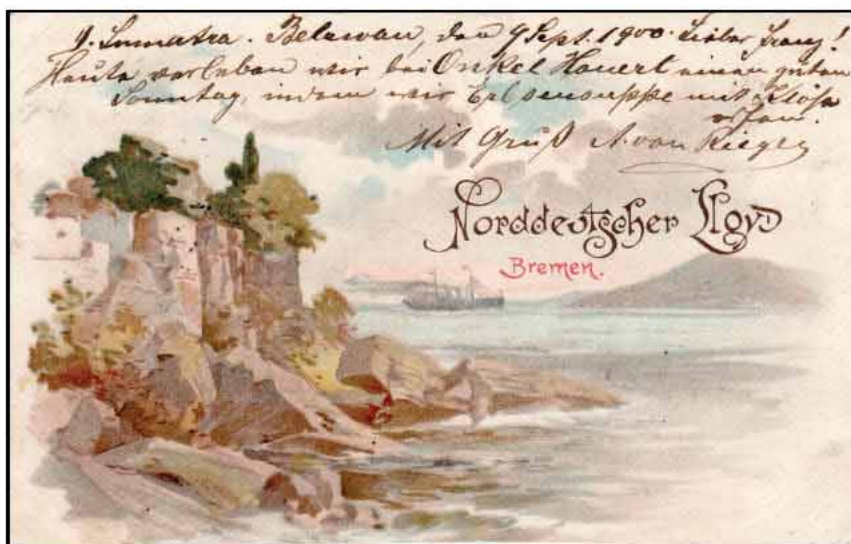 Sumatra. Belawan, den 9 Sept. 1900. Lieber Franz!
Heute verleben wir bei Onkel Hauert einen guten
Sonntag, indem wir Erbsensuppe mit
Mit Gruß A. von
Norddeutscher Lloyd
Bremen.